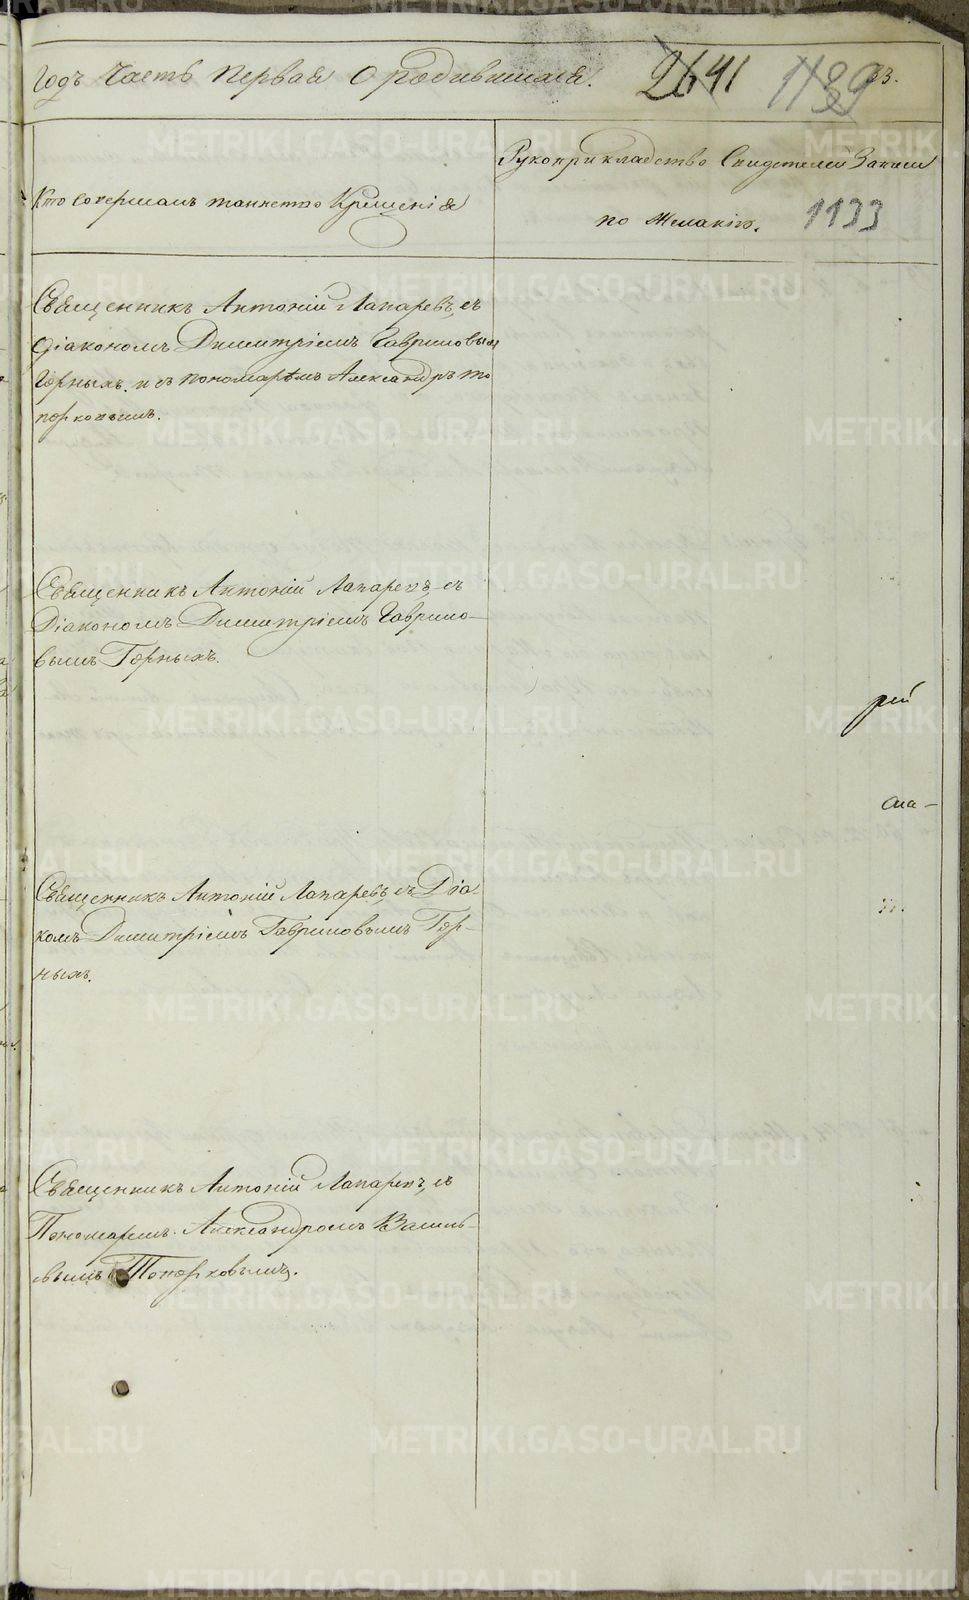 Годъ Часть Первая О родившихся. 2641 1139 33.
Кто совершалъ таинство Крещенія
Рукоприкладство Свидетелей Записи
по желанію. 1133
Священникъ Антоній Лапаревъ, съ
Діакономъ Димитріемъ Гавриловым
Горныхъ. и съ пономарѣмъ Александръ То
порковымъ.
Священникъ Антоній Лапаревъ, съ
Діакономъ Димитріемъ Гаврило-
вымъ Горныхъ.
рій
сла-
Священникъ Антоній Лапаревъ, съ Діа
комъ Димитріемъ Гавриловымъ Гор-
ныхъ.
Священникъ Антоній Лапаревъ, съ
Пономаремъ Александромъ Василь-
вымъ Топорковымъ.
METRIKI.GASO-URAL.RU